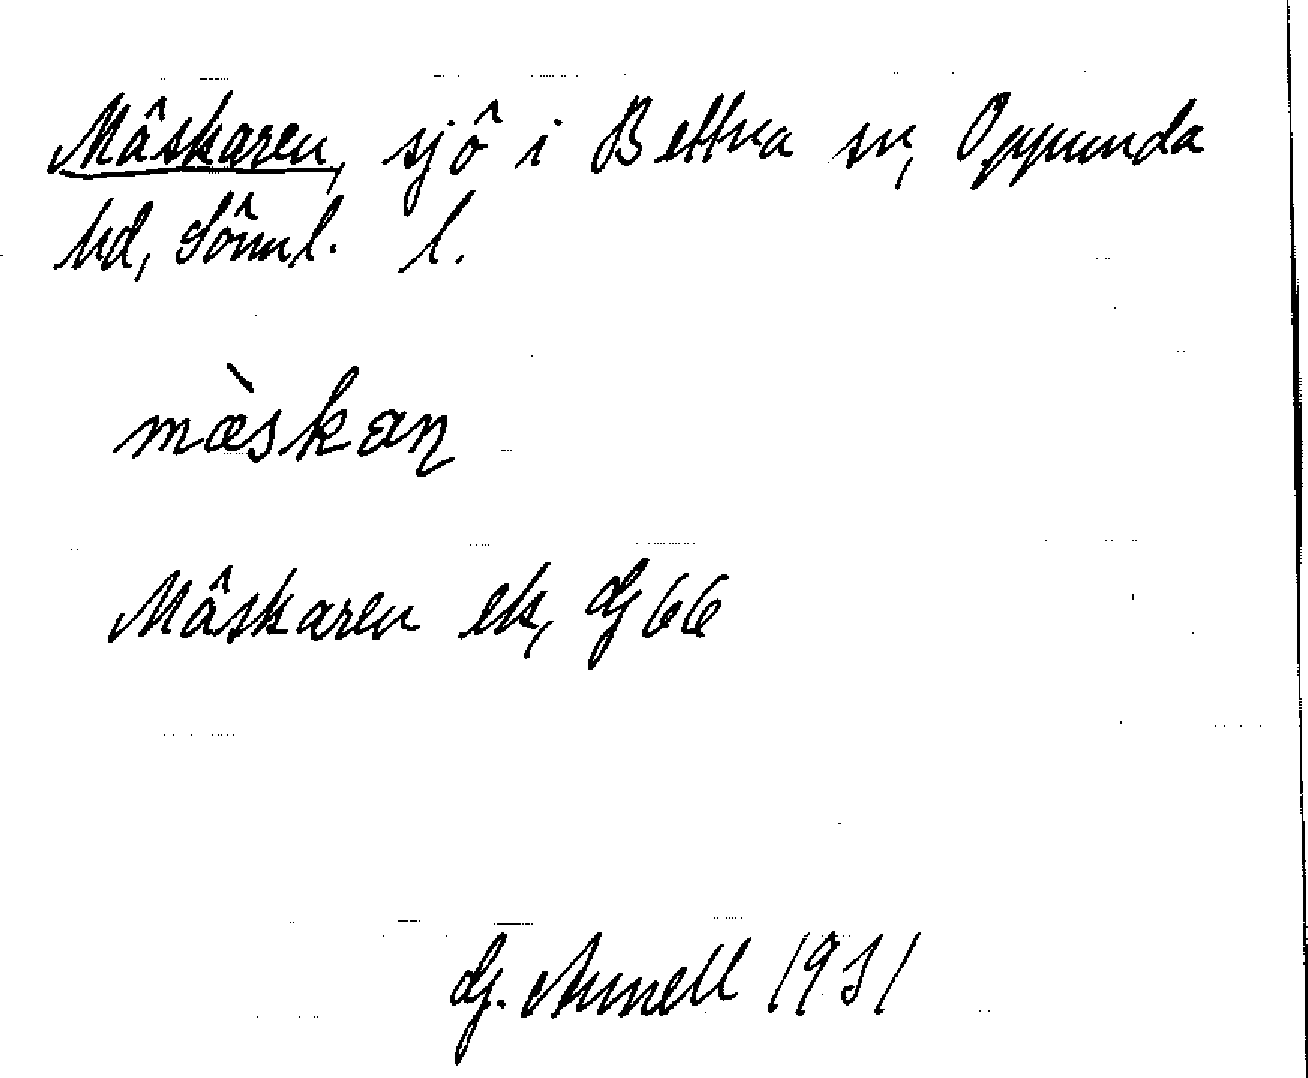 Mâskaren, sjô i Bettna sn, Oppunda
hd, Sôrml. l.
mæ̀skaɳ
Mâskaren ek, G 66
G. Annell 1931